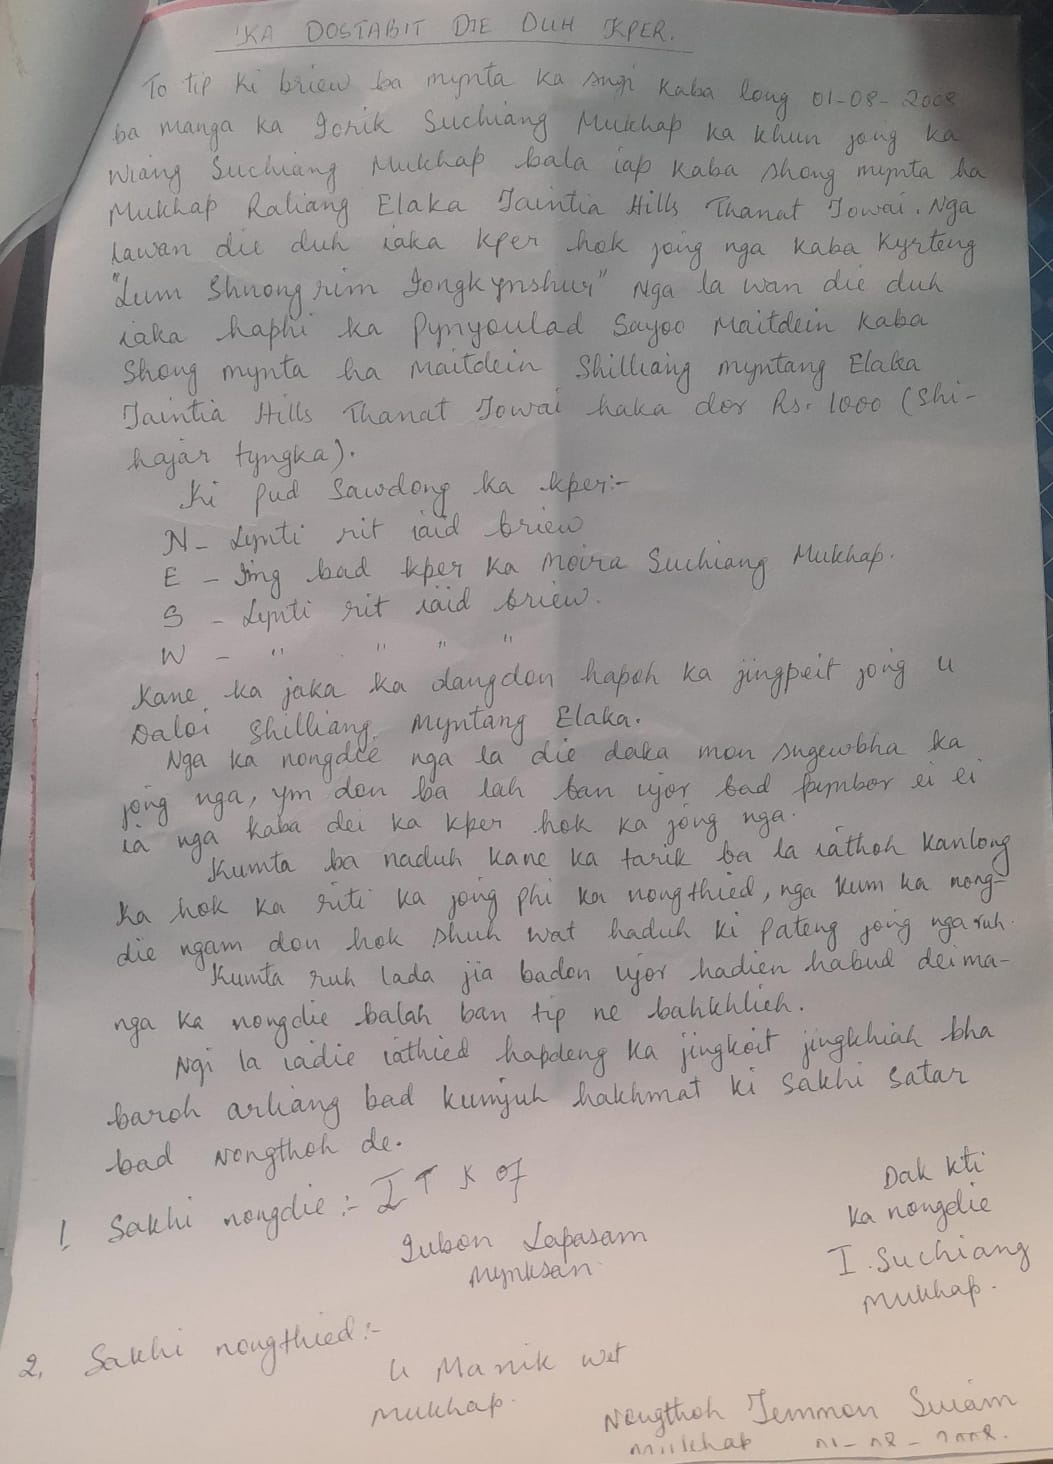 'KA DOSTABIT DIE DUH KPER.
To tip ki briew ba mynta ka sngi kaba long 01-08-2008
ba manga ka Iorik Suchiang Mukhap ka khun jong ka
Wiang Suchiang Mukhap bala iap kaba shong mynta ha
Mukhap Raliang Elaka Jaintia Hills Thanat Jowai. Nga
lawan die duh iaka kper hok jong nga kaba kyrteng
"Lum Shnong rim Iongkynshur" Nga la wan die duh
iaka haphi ka Pynyoulad Sayoo Maitdein kaba
Shong mynta ha Maitdein Shilliang myntang Elaka
Jaintia Hills Thanat Jowai haka dor Rs. 1000 (Shi-
hajar tyngka).
Ki pud Sawdong ka kper:-
N- Lynti rit iaid briew
E - Iing bad kper ka Moira Suchiang Mukhap.
S - Lynti rit iaid briew.
W - " " " "
Kane ka jaka ka dangdon hapoh ka jingpeit jong u
Daloi Shilliang Myntang Elaka.
Nga ka nongdie nga la die daka mon sngewbha ka
jong nga, ym don ba lah ban ujor bad pymbor ei ei
ia nga kaba dei ka kper hok ka jong nga.
Kumta ba naduh kane ka tarik ba la iathoh kanlong
ka hok ka riti ka jong phi ka nongthied, nga kum ka nong-
die ngam don hok shuh wat haduh ki pateng jong nga ruh.
Kumta ruh lada jia badon ujor hadien habud deima-
nga ka nongdie balah ban tip ne bahkhlieh.
Ngi la iadie iathied hapdeng ka jingkoit jingkhiah bha
baroh arliang bad kumjuh hakhmat ki Sakhi Satar
bad Nongthoh de.
1. Sakhi nongdie :- I T K of
Iubon Lapasam
Mynksan
Dak kti
ka nongdie
I. Suchiang
Mukhap.
2. Sakhi nongthied :-
U Manik Wet
Mukhap.
Nongthoh Jemmon Suiam
Mukhap 01-08-2008.